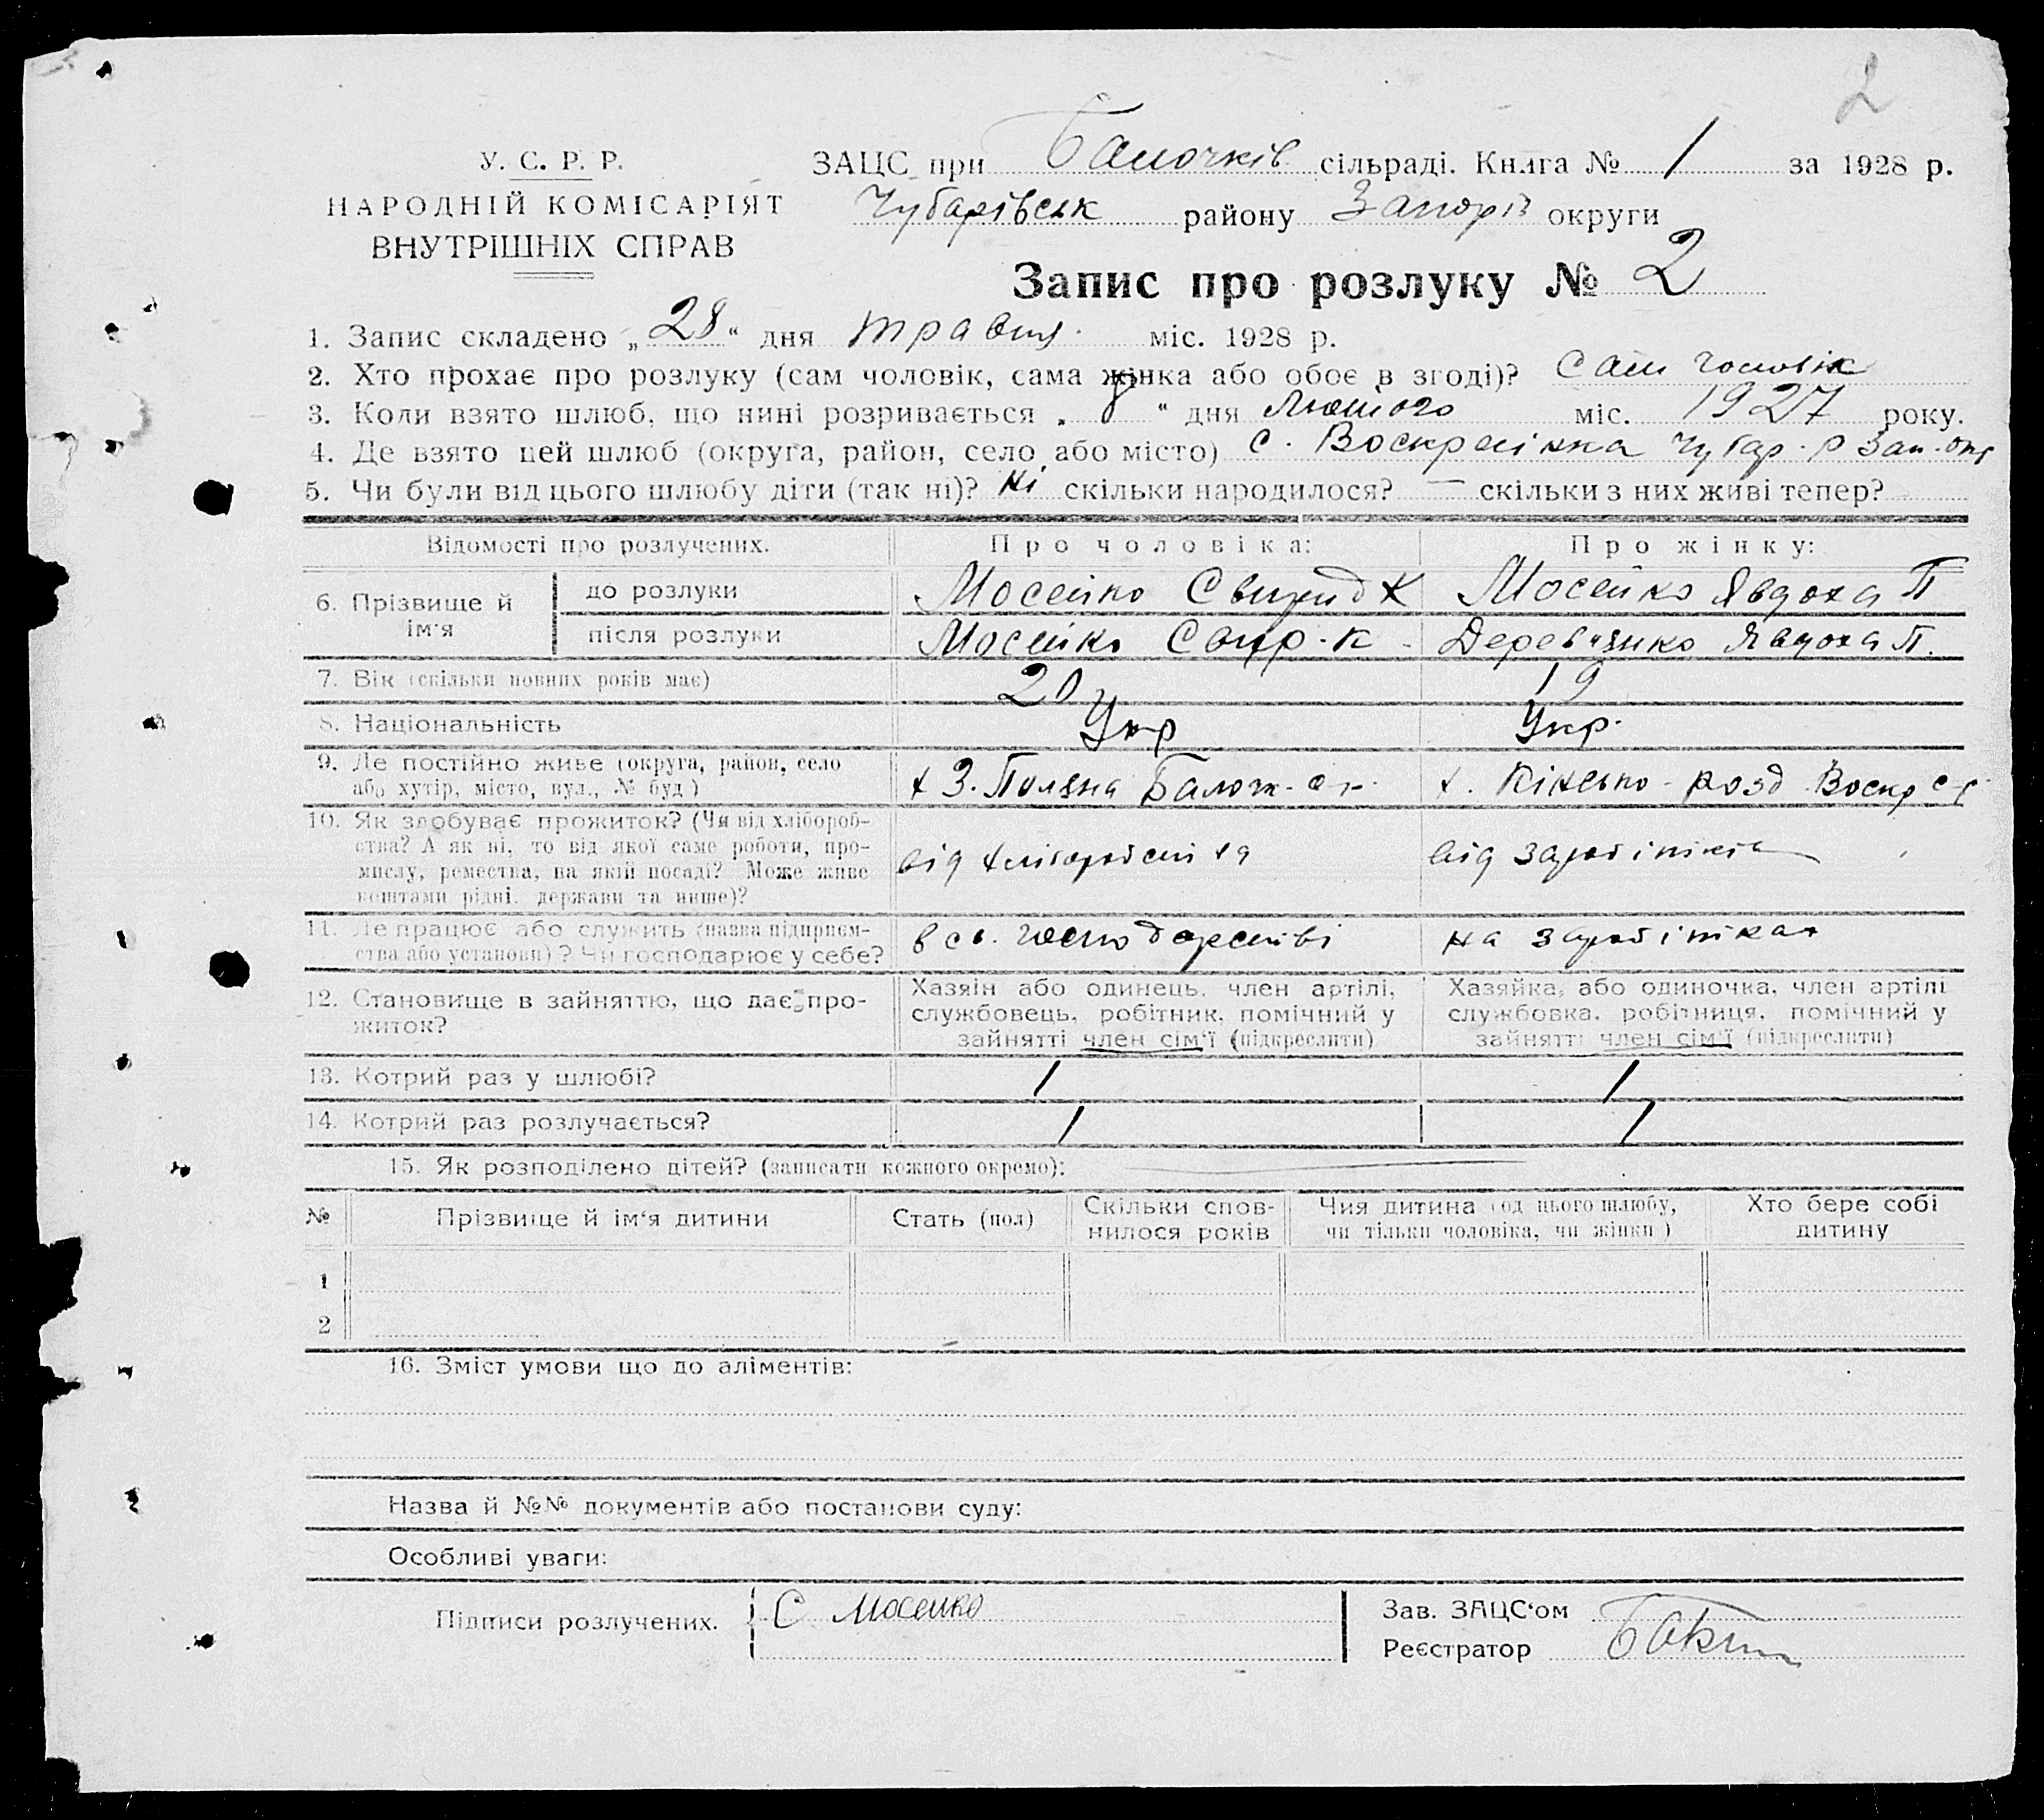 2
У. С. Р. Р.
НАРОДНІЙ КОМІСАРІЯТ
ВНУТРІШНІХ СПРАВ
ЗАЦС при Балочків сільраді. Книга № 1 за 1928 р.
Чубарівськ району Запоріз округи
Запис про розлуку № 2
1. Запис складено „28“ дня травня міс. 1928 р.
2. Хто прохає про розлуку (сам чоловік, сама жінка або обоє в згоді)? Сам чоловік
3. Коли взято шлюб, що нині розривається „8“ дня Лютого міс. 1927 року.
4. Де взято цей шлюб (округа, район, село або місто) с. Воскресінка Чубар. р Зап. окр
5. Чи були від цього шлюбу діти (так ні)? Ні скільки народилося? — скільки з них живі тепер?
Відомості про розлучених. Про чоловіка: Про жінку:
6. Прізвище й ім'я до розлуки Мосейко Свирид К Мосейко Явдоха П
після розлуки Мосейко Свир. К Дерев'янко Явдоха П.
7. Вік (скільки повних років має) 20 19
8. Національність Укр Укр.
9. Де постійно живе (округа, район, село
або хутір, місто, вул., № буд) х З. Поляна Балочк. с-р х. Кінсько-розд Воскр с-р
10. Як здобуває прожиток? (Чи від хлібороб-
ства? А як ні, то від якої саме роботи, про-
мислу, ремества, на якій посаді? Може живе
коштами рідні, держави та инше)? від хліборобства від заробітків
11. Де працює або служить (назва підприєм-
ства або установи)? Чи господарює у себе? в св. господарстві на заробітках
12. Становище в зайняттю, що дає про-
житок?
Хазяїн або одинець, член артілі,
службовець, робітник, помічний у
зайнятті член сім'ї (підкреслити)
Хазяйка, або одиночка, член артілі
службовка, робітниця, помічний у
зайнятті член сім'ї (підкреслити)
13. Котрий раз у шлюбі? 1 1
14. Котрий раз розлучається? 1 1
15. Як розподілено дітей? (записати кожного окремо): —
№ Прізвище й ім'я дитини Стать (пол) Скільки спов-
нилося років Чия дитина (од цього шлюбу,
чи тільки чоловіка, чи жінки) Хто бере собі
дитину
1
2
16. Зміст умови що до аліментів:
Назва й №№ документів або постанови суду:
Особливі уваги:
Підписи розлучених. С Мосейко
Зав. ЗАЦС'ом
Реєстратор